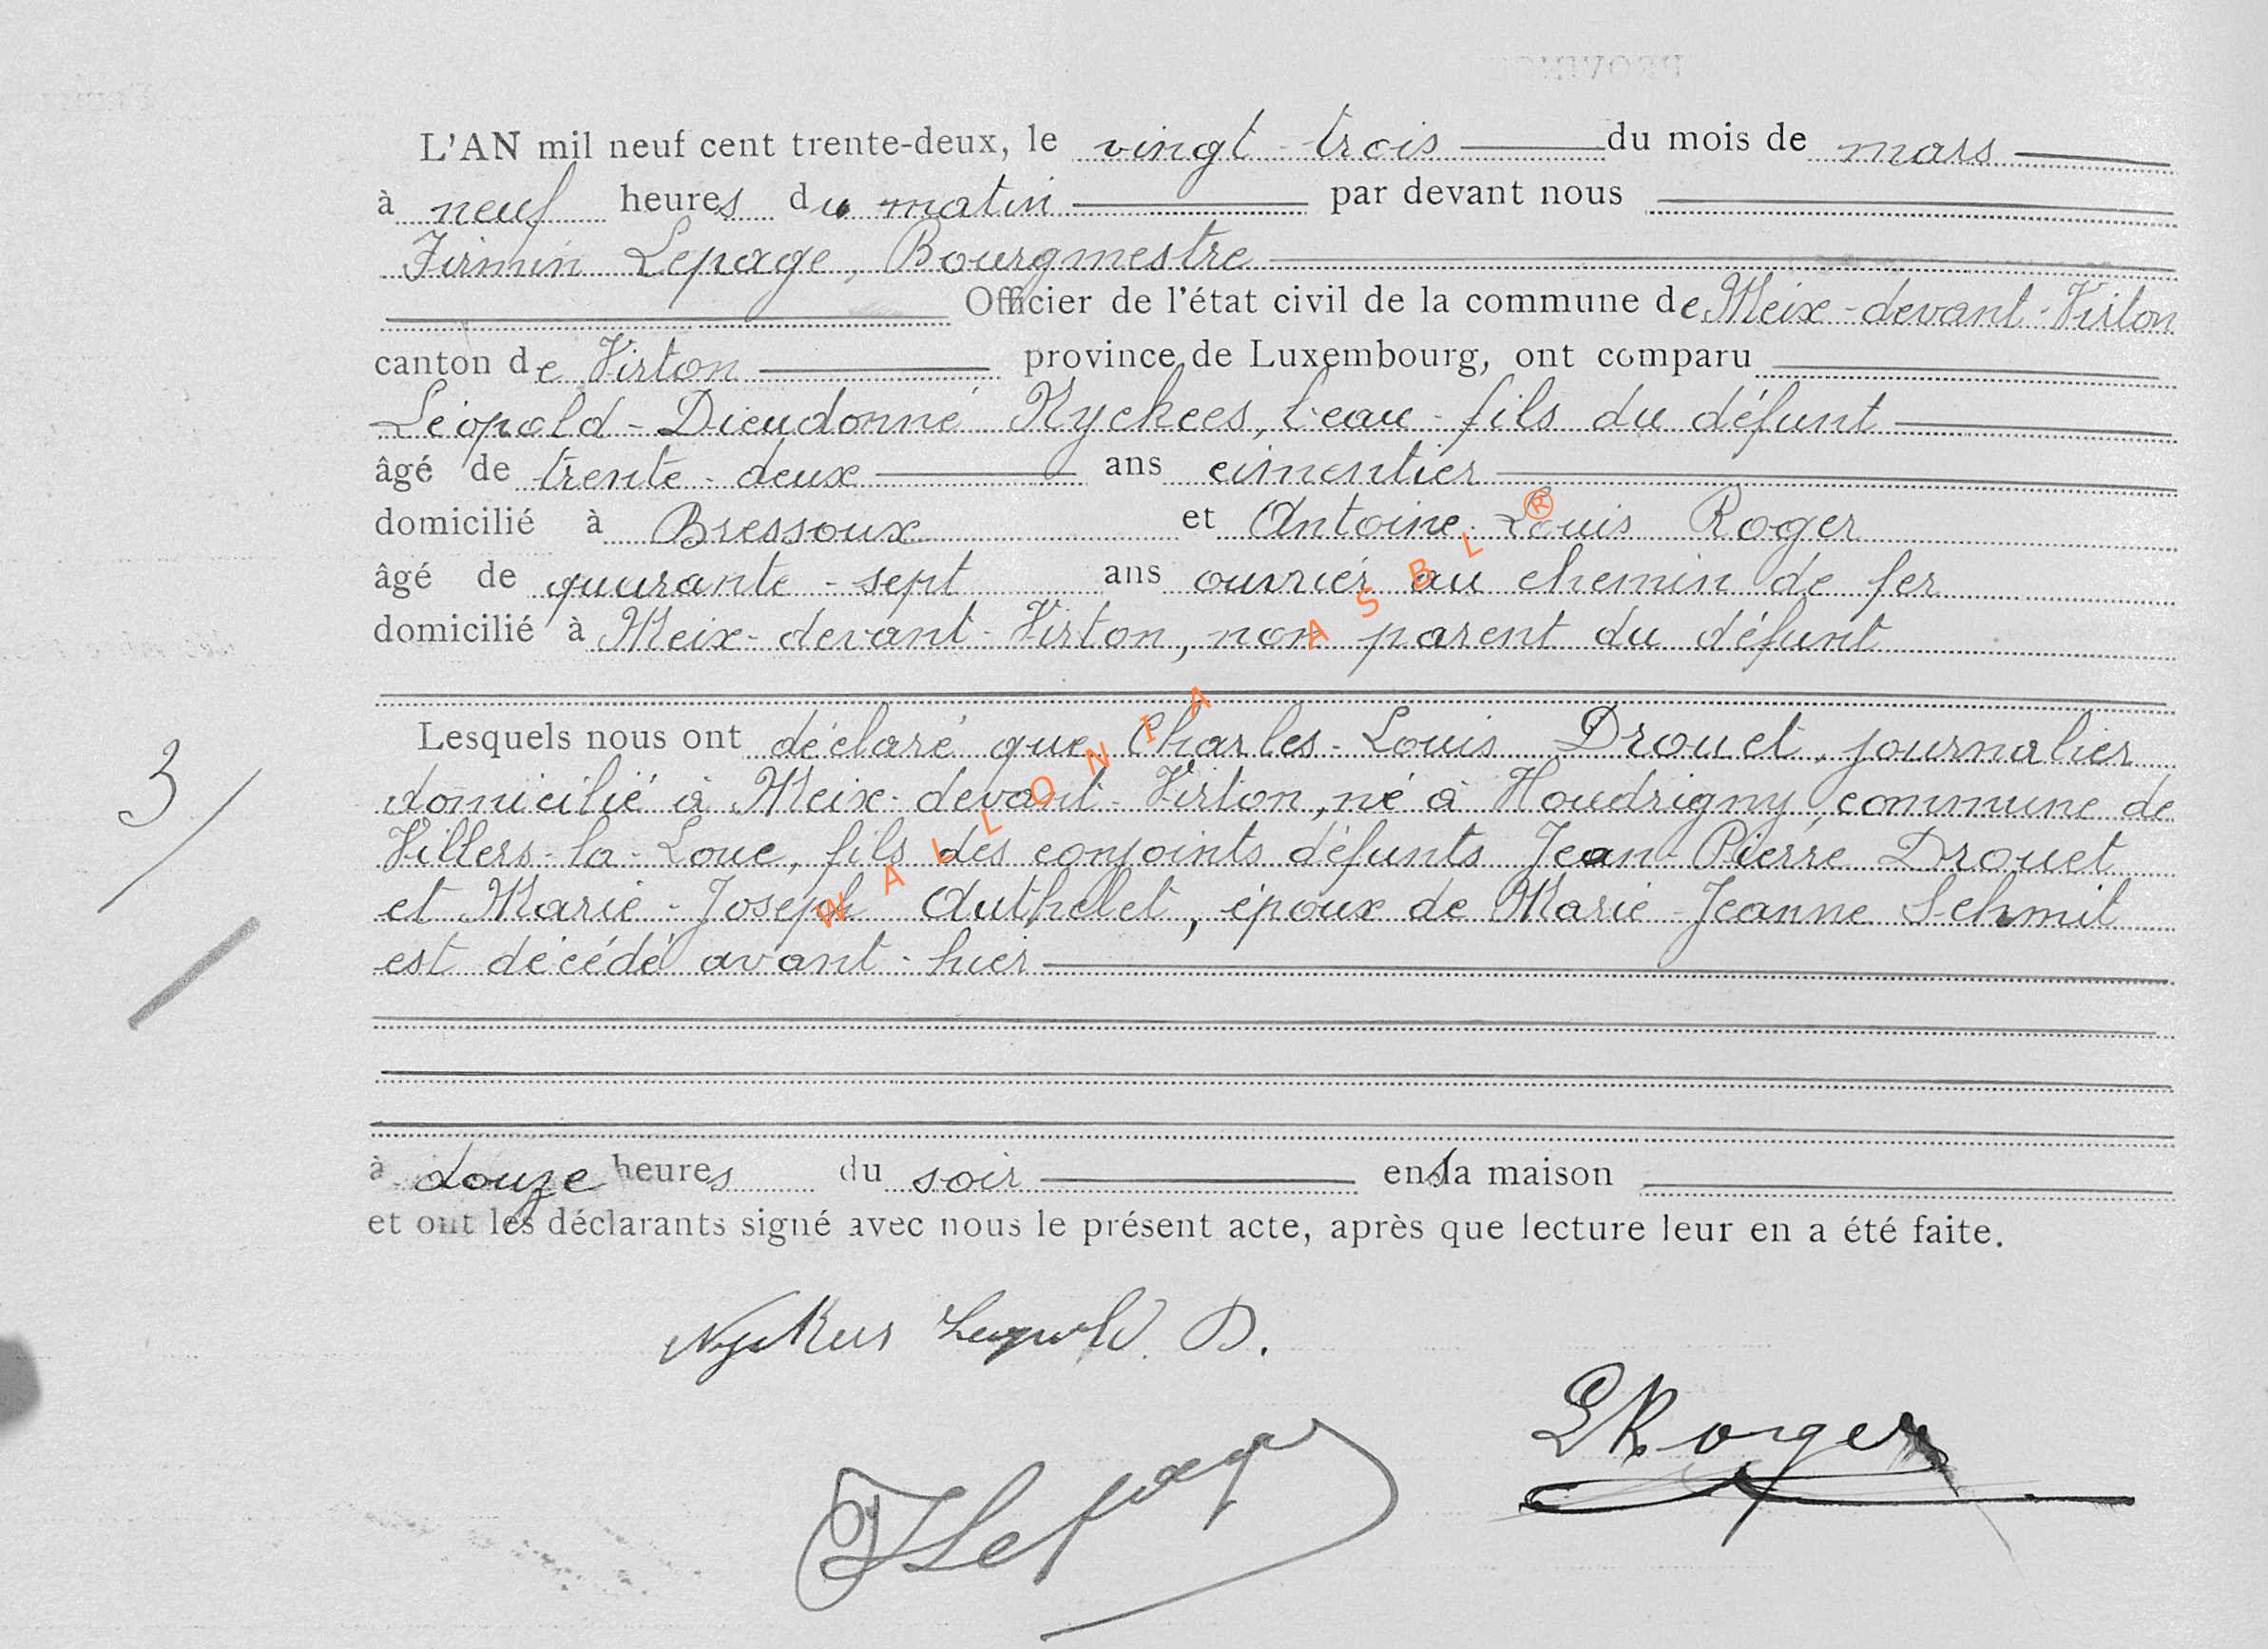 L'AN mil neuf cent trente-deux, le vingt-trois du mois de mars
à neuf heures du matin par devant nous
Firmin Lepage, Bourgmestre
Officier de l'état civil de la commune de Meix-devant-Virton
canton de Virton province de Luxembourg, ont comparu
Léopold-Dieudonné Nyckees, beau-fils du défunt
âgé de trente-deux ans cimentier
domicilié à Bressoux et Antoine-Louis Roger
âgé de quarante-sept ans ouvrier au chemin de fer
domicilié à Meix-devant-Virton, non parent du défunt
Lesquels nous ont déclaré que Charles-Louis Drouet, journalier
3/ domicilié à Meix-devant-Virton, né à Houdrigny, commune de
Villers-la-Loue, fils des conjoints défunts Jean-Pierre Drouet
et Marie-Joseph Authelet, époux de Marie-Jeanne Schmit
est décédé avant-hier
à douze heures du soir en sa maison
et ont les déclarants signé avec nous le présent acte, après que lecture leur en a été faite.
Nyckees Léopold. D.
LRoger
FLepage
WALLONIA ASBL ®